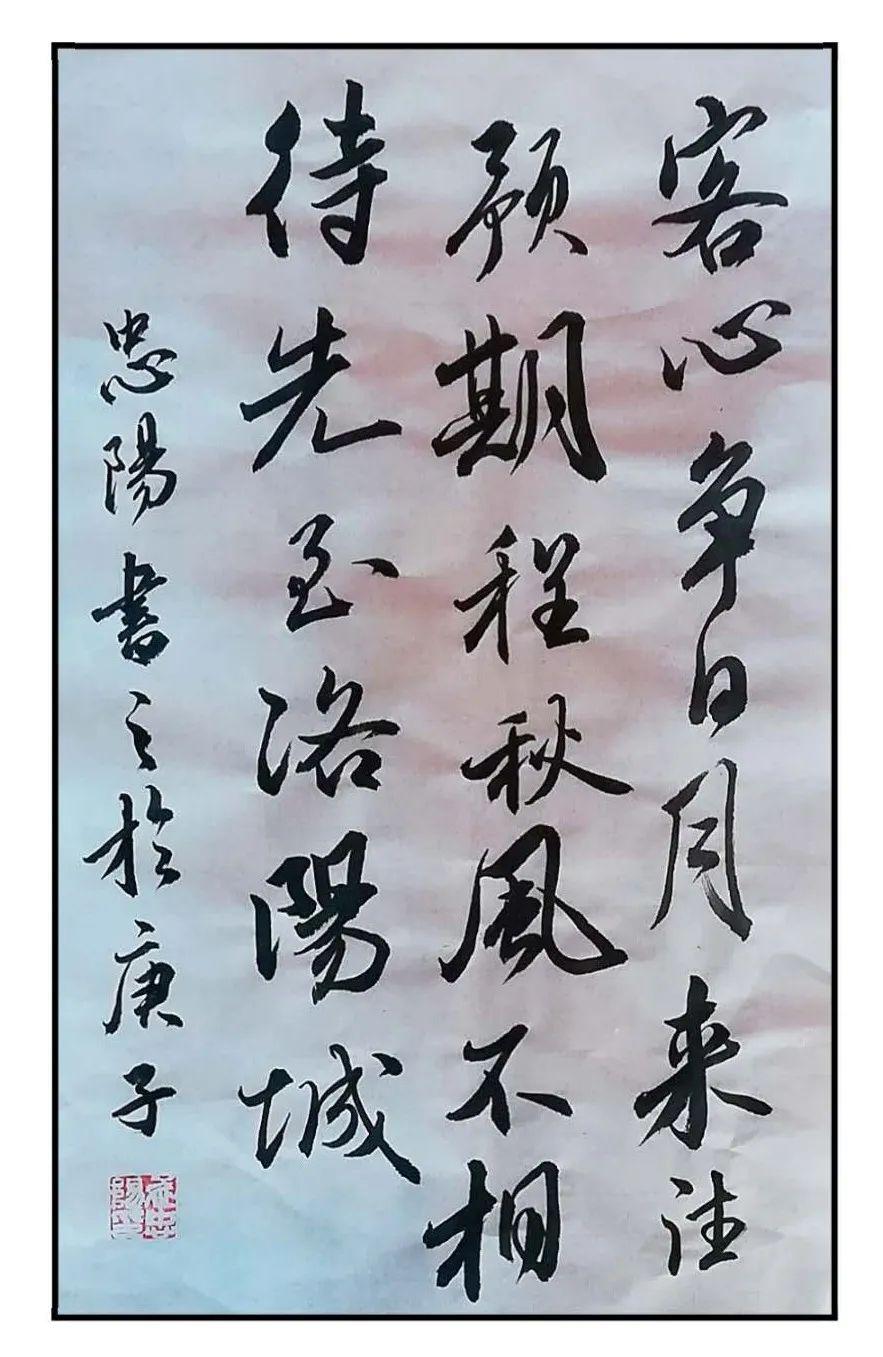 客心争日月来往
预期程秋風不相
待先至洛陽城
忠陽書之於庚子